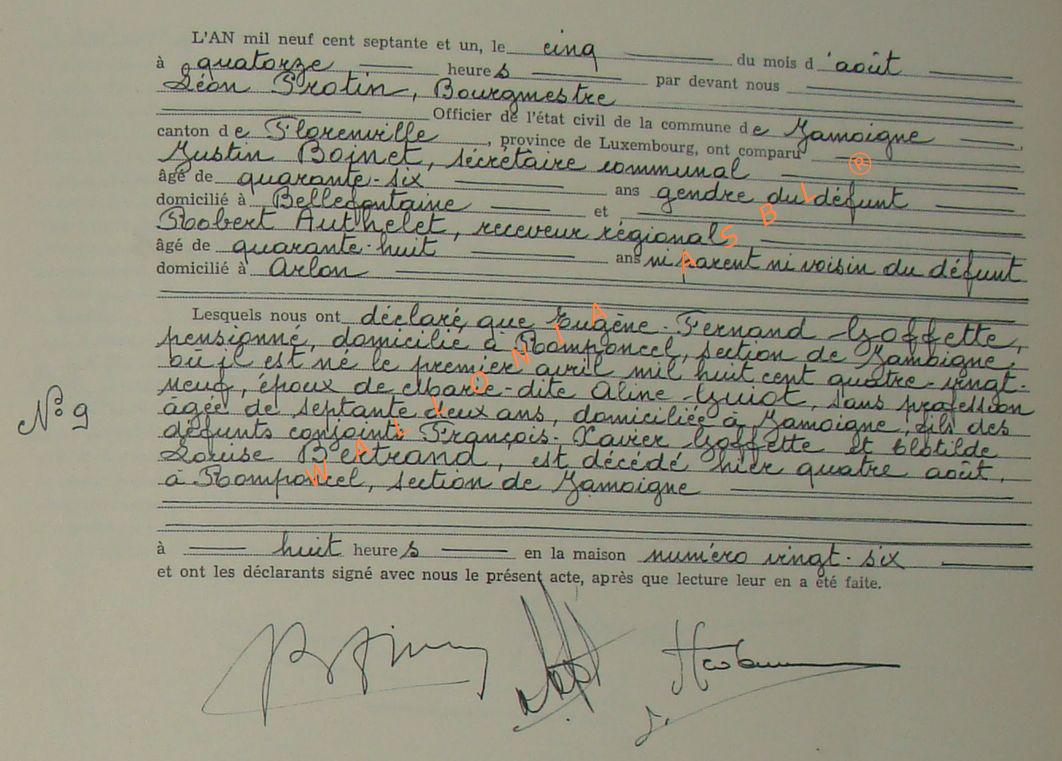 L'AN mil neuf cent septante et un, le cinq du mois d'août
à quatorze heures par devant nous
Léon Protin, Bourgmestre
Officier de l'état civil de la commune de Jamoigne
canton de Florenville, province de Luxembourg, ont comparu
Justin Boinet, sécrétaire communal
âgé de quarante-six ans gendre du défunt
domicilié à Bellefontaine et
Robert Authelet, receveur régional
âgé de quarante-huit ans ni parent ni voisin du défunt
domicilié à Arlon
Lesquels nous ont déclaré que Eugène-Fernand Goffette,
pensionné, domicilié à Romponcel, section de Jamoigne,
où il est né le premier avril mil huit cent quatre-vingt-
neuf, époux de Marie-dite Aline-Guiot, sans profession
âgée de septante deux ans, domiciliée à Jamoigne, fils des
défunts conjoints François-Xavier Goffette et Clotilde
Louise Bertrand, est décédé hier quatre août,
à Romponcel, section de Jamoigne
N° 9
à huit heures en la maison numéro vingt-six
et ont les déclarants signé avec nous le présent acte, après que lecture leur en a été faite.
WALLONIA ASBL ®